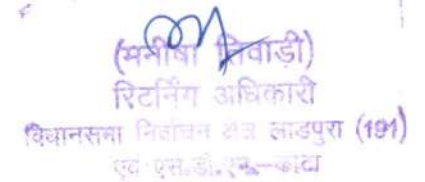 (मनीषा तिवाड़ी)
रिटर्निंग अधिकारी
विधानसभा निर्वाचन क्षेत्र लाडपुरा (191)
एवं एस.डी.एम.—कोटा